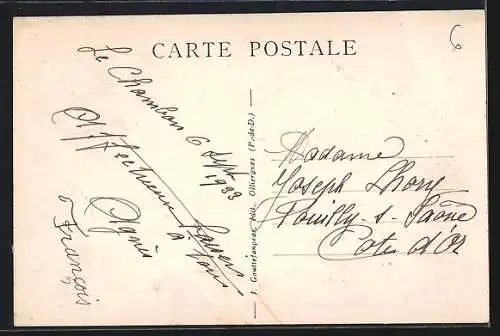 CARTE POSTALE
6
Le Chambon 6 Sept
1933
Affectueux baisers
à tous
Agnès
François
J. Goutte édit. Olliergues (P.-de-D.)
Madame
Joseph Lhory
Pouilly-s-Saône
Côte d'Or